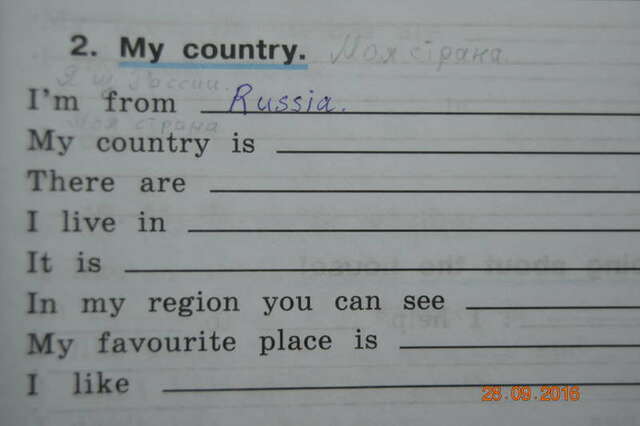 2. My country. Моя страна
Я из России.
I'm from Russia.
Моя страна
My country is
There are
I live in
It is
In my region you can see
My favourite place is
I like
28.09.2016